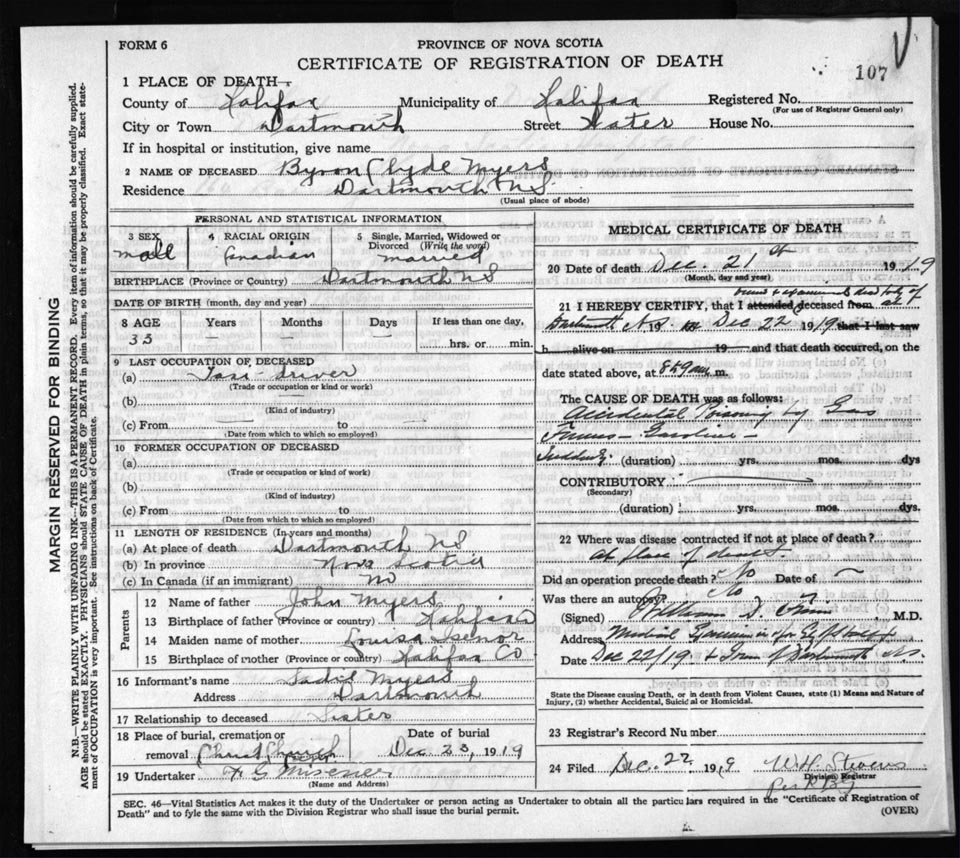 FORM 6
PROVINCE OF NOVA SCOTIA
CERTIFICATE OF REGISTRATION OF DEATH
107
1 PLACE OF DEATH—
County of Halifax Municipality of Halifax Registered No.
(For use of Registrar General only)
City or Town Dartmouth Street Water House No.
If in hospital or institution, give name
2 NAME OF DECEASED Byron Clyde Myers
Residence Dartmouth N.S.
(Usual place of abode)
PERSONAL AND STATISTICAL INFORMATION
3 SEX 4 RACIAL ORIGIN 5 Single, Married, Widowed or
Divorced (Write the word)
male Canadian married
BIRTHPLACE (Province or Country) Dartmouth N S
DATE OF BIRTH (month, day and year)
8 AGE Years Months Days If less than one day,
33 — — — hrs. or min.
9 LAST OCCUPATION OF DECEASED
(a) Taxi-Driver
(Trade or occupation or kind or work)
(b)
(Kind of industry)
(c) From to
(Date from which to which so employed)
10 FORMER OCCUPATION OF DECEASED
(a)
(Trade or occupation or kind of work)
(b)
(Kind of industry)
(c) From to
(Date from which to which so employed)
11 LENGTH OF RESIDENCE (In years and months)
(a) At place of death Dartmouth N S
(b) In province Nova Scotia
(c) In Canada (if an immigrant) no
Parents
12 Name of father John Myers
13 Birthplace of father (Province or country) Halifax
14 Maiden name of mother Louisa Isenor
15 Birthplace of mother (Province or country) Halifax Co
16 Informant's name Sadie Myers
Address Dartmouth
17 Relationship to deceased Sister
18 Place of burial, cremation or Date of burial
removal Christ Church Dec 23, 1919
19 Undertaker F G Misener
(Name and Address)
MEDICAL CERTIFICATE OF DEATH
20 Date of death Dec. 21st 1919
(Month, day and year)
21 I HEREBY CERTIFY, that I attended deceased from
Dartmouth N.S. 19 Dec 22 1919 that I last saw
h alive on 19 and that death occurred, on the
date stated above, at 8:59 am m.
The CAUSE OF DEATH was as follows:
Accidental Poisoning by Gas
Fumes — Gasoline —
Suddenly. (duration) yrs. mos. dys
CONTRIBUTORY
(Secondary)
(duration) yrs. mos. dys.
22 Where was disease contracted if not at place of death?
At place of death.
Did an operation precede death? No Date of —
Was there an autopsy? No
(Signed) William D. M.D.
Address Medical Examiner for City of Halifax
Date Dec 22/19 & Town of Dartmouth N.S.
State the Disease causing Death, or in death from Violent Causes, state (1) Means and Nature of
Injury, (2) whether Accidental, Suicidal or Homicidal.
23 Registrar's Record Number
24 Filed Dec. 22 1919 W.H. Stevens
Division Registrar
Per
SEC. 46—Vital Statistics Act makes it the duty of the Undertaker or person acting as Undertaker to obtain all the particulars required in the "Certificate of Registration of
Death" and to fyle the same with the Division Registrar who shall issue the burial permit.
(OVER)
MARGIN RESERVED FOR BINDING
N.B.—WRITE PLAINLY WITH UNFADING INK—THIS IS A PERMANENT RECORD. Every item of information should be carefully supplied.
AGE should be stated EXACTLY. PHYSICIANS should STATE CAUSE OF DEATH in plain terms, so that it may be properly classified. Exact state-
ment of OCCUPATION is very important. See instructions on back of Certificate.